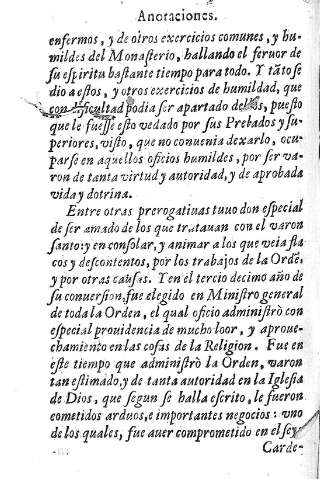 Anotaciones.
enfermos, y de otros exercicios comunes, y hu-
mildes del Monasterio, hallando el feruor de
su espiritu bastante tiempo para todo. Y tãto se
dio a estos, y otros exercicios de humildad, que
con dificultad podia ser apartado dellos, puesto
que le fuesse esto vedado por sus Prelados y su-
periores, visto, que no conuenia dexarlo, ocu-
parse en aquellos oficios humildes, por ser va-
ron de tanta virtud y autoridad, y de aprobada
vida y dotrina.
Entre otras prerogatiuas tuuo don especial
de ser amado de los que tratauan con el varon
santo: y en consolar, y animar a los que veia fla
cos y descontentos, por los trabajos de la Ordẽ,
y por otras causas. Y en el tercio decimo año de
su conuersion, fue elegido en Ministro general
de toda la Orden, el qual oficio administrò con
especial prouidencia de mucho loor, y aproue-
chamiento en las cosas de la Religion. Fue en
este tiempo que administrò la Orden, varon
tan estimado, y de tanta autoridad en la Iglesia
de Dios, que segun se halla escrito, le fueron
cometidos arduos, e importantes negocios: vno
de los quales, fue auer comprometido en el sey
Carde-